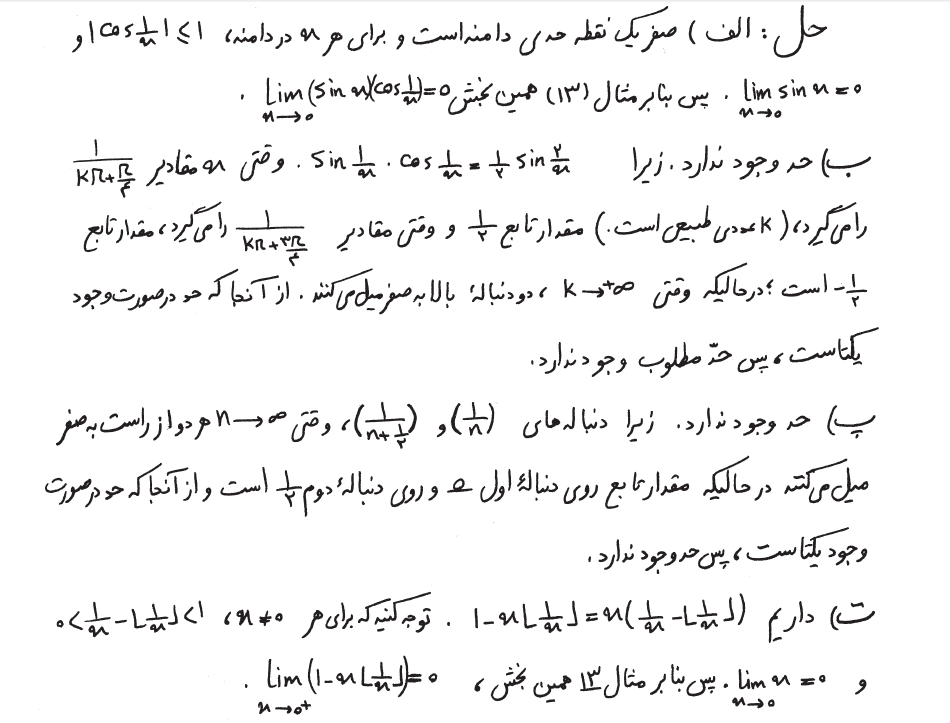 حل : الف ) صفر یک نقطه حدی دامنه است و برای هر x در دامنه، |cos 1/x| ≤ 1 و
lim_{x→0} sin x = 0 . پس بنابر مثال (۱۳) همین بخش lim_{x→0} (sin x)(cos 1/x) = 0 .
ب) حد وجود ندارد. زیرا sin 1/x · cos 1/x = 1/2 sin 2/x . وقتی x مقادیر 1/(kπ+π/4)
را می‌گیرد، (k عددی طبیعی است.) مقدار تابع 1/2 و وقتی مقادیر 1/(kπ+3π/4) را می‌گیرد، مقدار تابع
-1/2 است ؛ درحالیکه وقتی k→+∞ ، دو دنبالهٔ بالا به صفر میل می‌کنند . از آنجا که حد درصورت وجود
یکتاست ، پس حدّ مطلوب وجود ندارد.
پ) حد وجود ندارد. زیرا دنباله های (1/n) و (1/(n+1/2)) ، وقتی n→∞ هر دو از راست به صفر
میل می‌کنند در حالیکه مقدار تابع روی دنبالهٔ اول 0 و روی دنبالهٔ دوم 1/2 است و از آنجا که حد درصورت
وجود یکتاست ، پس حد وجود ندارد.
ت) داریم 1-x⌊1/x⌋ = x(1/x-⌊1/x⌋) . توجه کنید که برای هر x≠0 ، 0<1/x-⌊1/x⌋<1
و lim_{x→0} x = 0 . پس بنابر مثال ۱۳ همین بخش ، lim_{x→0+} (1-x⌊1/x⌋) = 0 .